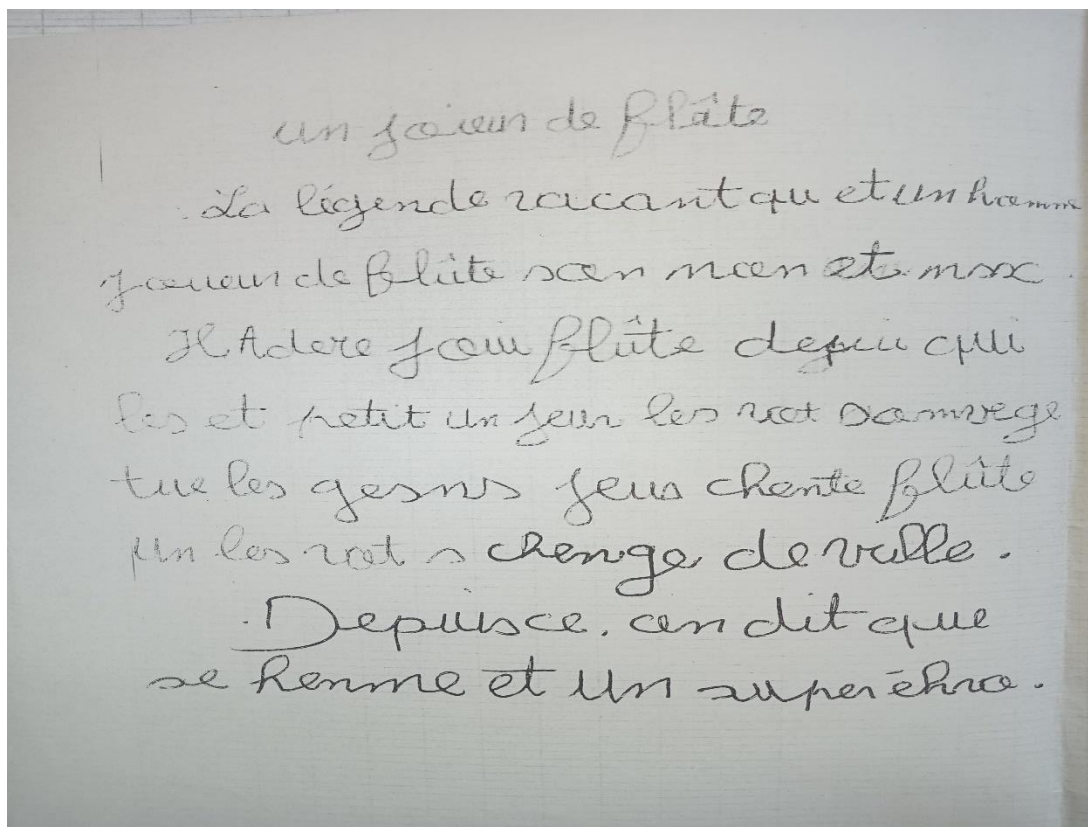 un joieur de flâte
La légende racant qu et un homme
joueur de flûte son non et max
Il Adore joui flûte depui qui
les et petit un jeur les rat somvege
tue les gesns jeus chante flûte
un les rat s chenge de ville.
Depuisce. on dit que
se henme et un superéhro.